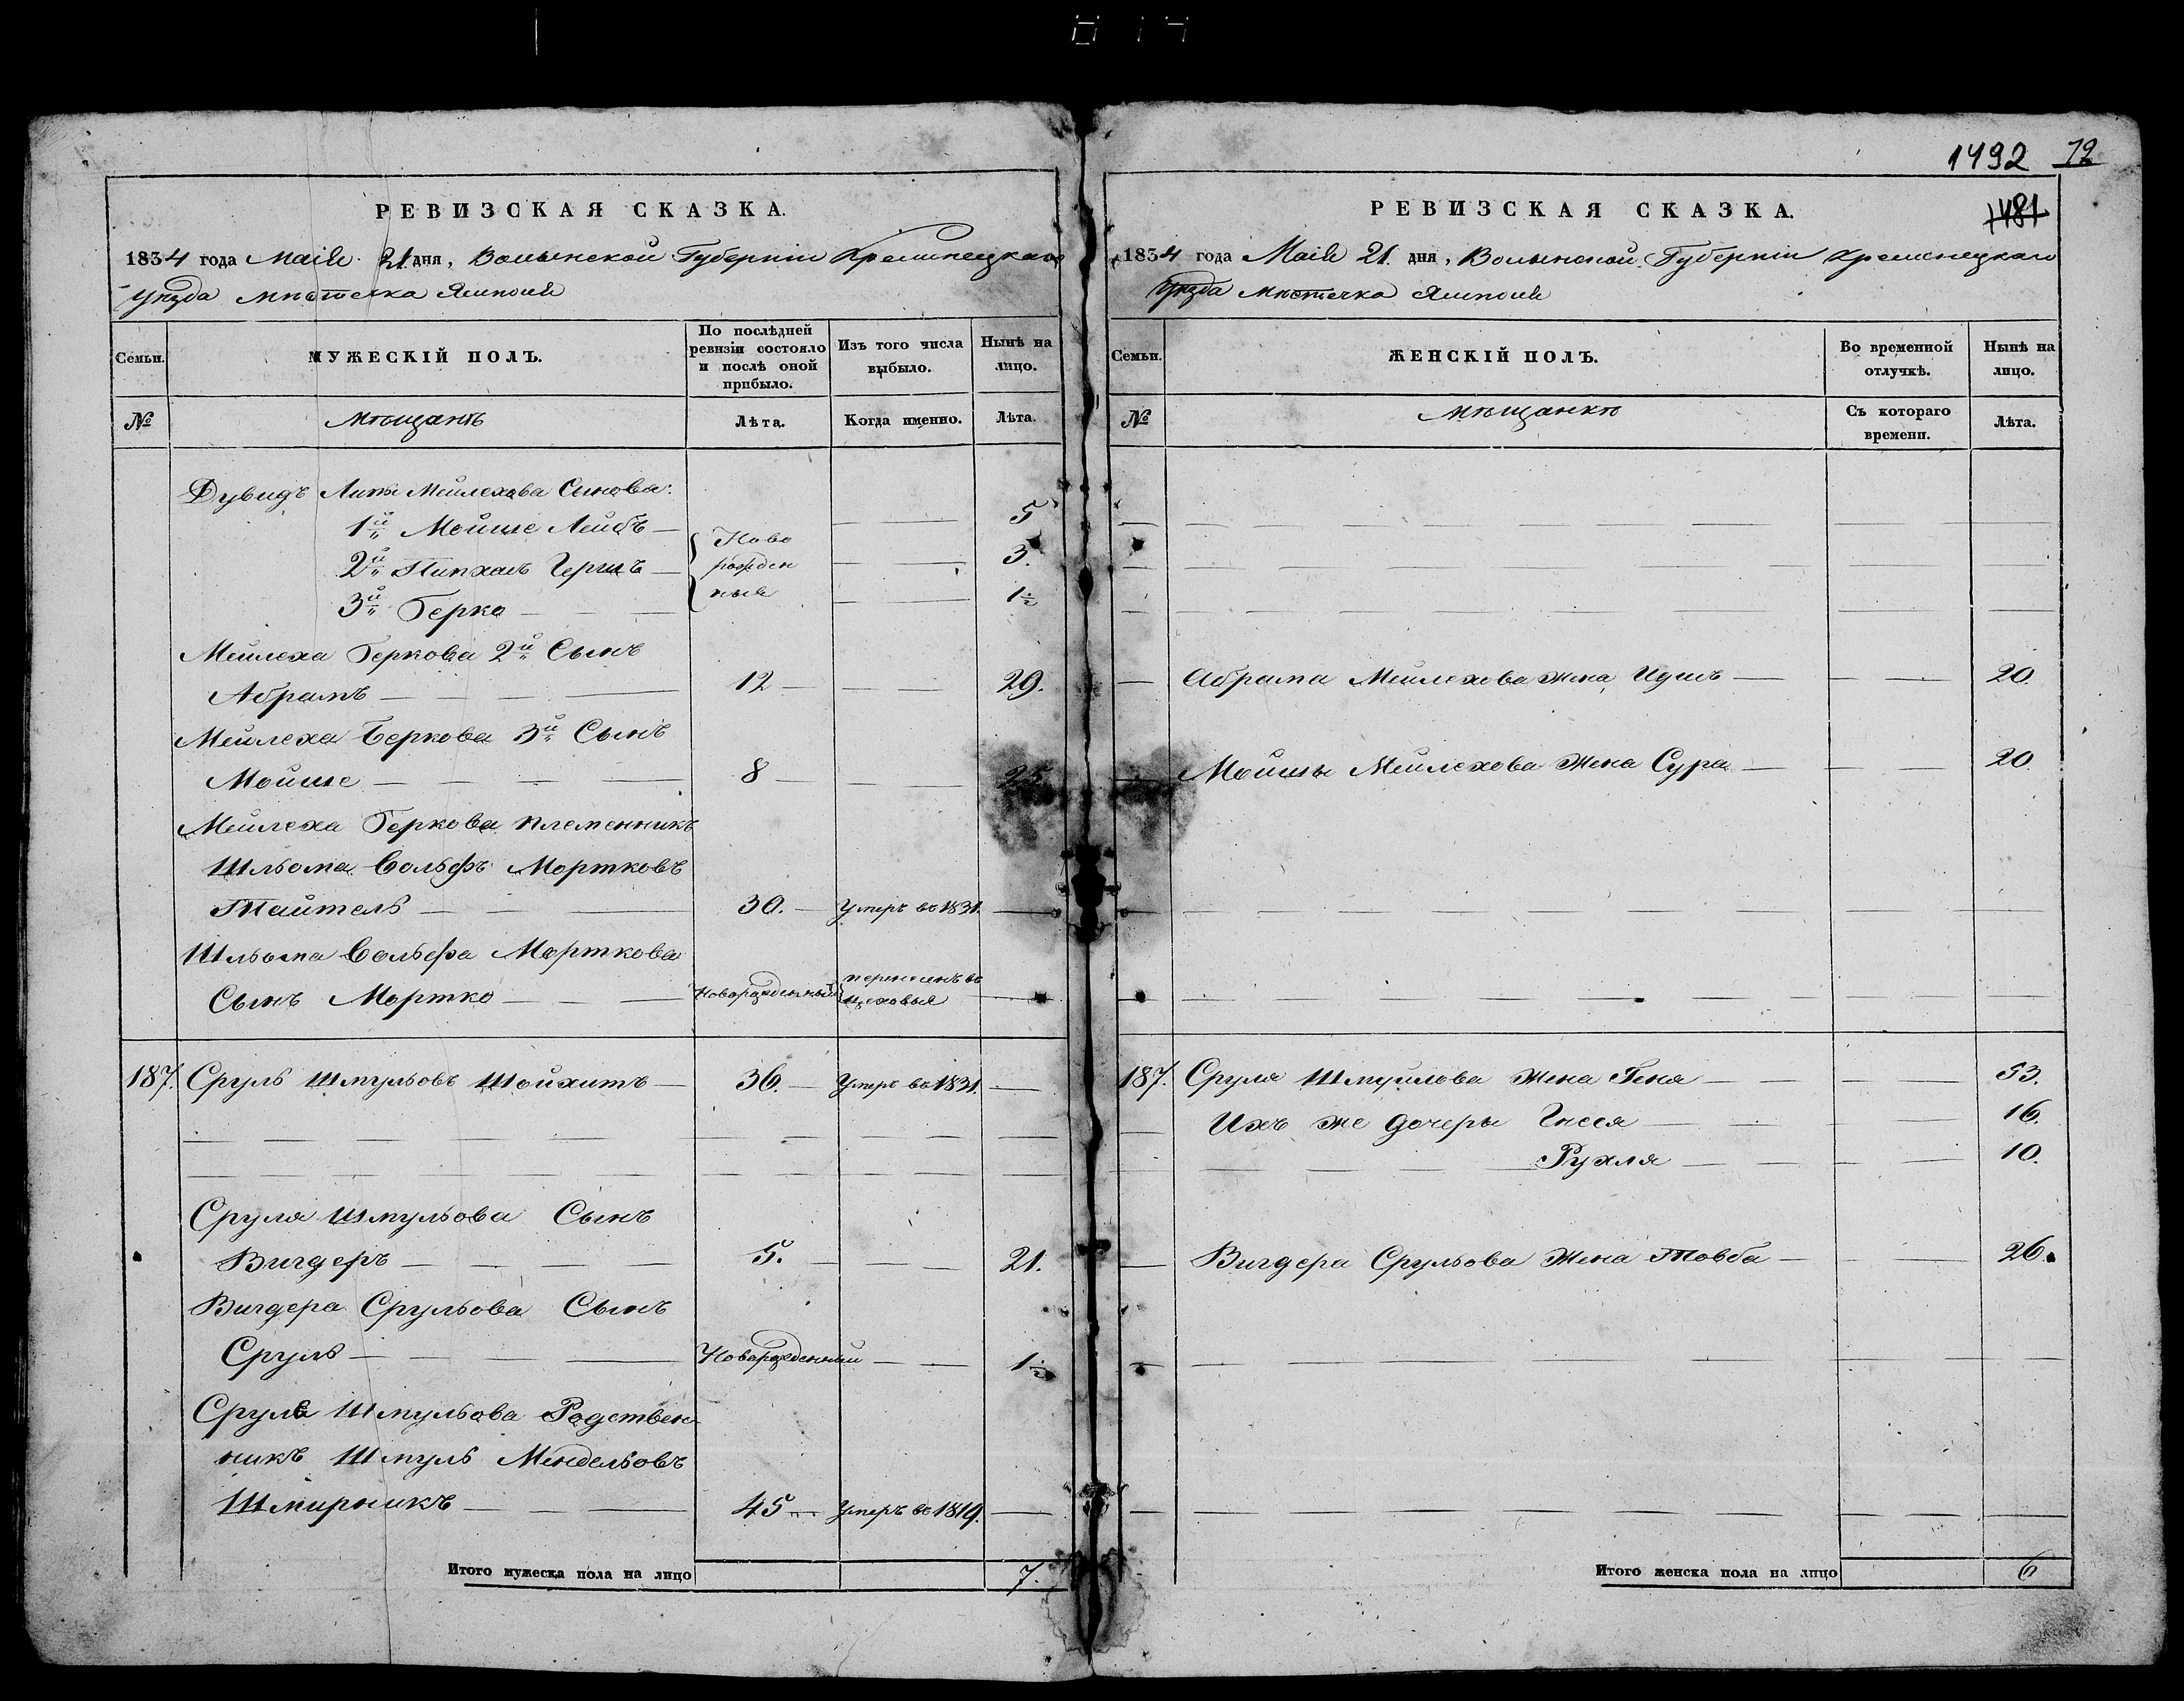 1492 72
1481
РЕВИЗСКАЯ СКАЗКА.
1834 года Маія 21 дня, Волынской Губерніи Кременецкаго
Уѣзда Мѣстечка Ямполя
Семьи. МУЖЕСКІЙ ПОЛЪ. По послѣдней ревизіи состояло и послѣ оной прибыло. Изъ того числа выбыло. Нынѣ на лицо.
№ Мѣщанѣ Лѣта. Когда именно. Лѣта.
Дувидъ Липы Мейлехова Сынова:
1й Мойше Лейбъ — Ново 5
2й Пинхасъ Гершъ — рожден 3.
3й Берко — ные 1½
Мейлеха Беркова 2й Сынъ
Абрамъ — 12 — 29.
Мейлеха Беркова 3й Сынъ
Мойше — 8 — 25
Мейлеха Беркова племенникъ
Шльома Вольфъ Мортковъ
Тайтель — 30. — Умеръ въ 1831.
Шльома Вольфа Морткова
Сынъ Мортко — Новорожденный перечисленъ въ цеховые
187. Сруль Шмульовъ Шойхитъ — 36. — Умеръ въ 1831. —
Сруля Шмульова Сынъ
Вигдеръ — 5. — 21.
Вигдера Срульова Сынъ
Сруль — Новорожденный — 1½
Сруля Шмульова Родствен-
никъ Шмуль Мендельовъ
Шмирникъ — 45 — Умеръ въ 1819. —
Итого мужеска пола на лицо 7.
РЕВИЗСКАЯ СКАЗКА.
1834 года Маія 21. дня, Волынской Губерніи Кременецкаго
Уѣзда Мѣстечка Ямполя
Семьи. ЖЕНСКІЙ ПОЛЪ. Во временной отлучкѣ. Нынѣ на лицо.
№ Мѣщанки Съ котораго времени. Лѣта.
— Абрама Мейлехова жена — 20.
— Мойшы Мейлехова Жена Сура — 20
187. Сруля Шмуйлова Жена Геня — 53.
Ихъ же дочеры Гнеся — 16.
Рухля — 10.
— Вигдера Срульова Жена Товба — 26.
Итого женска пола на лицо 6